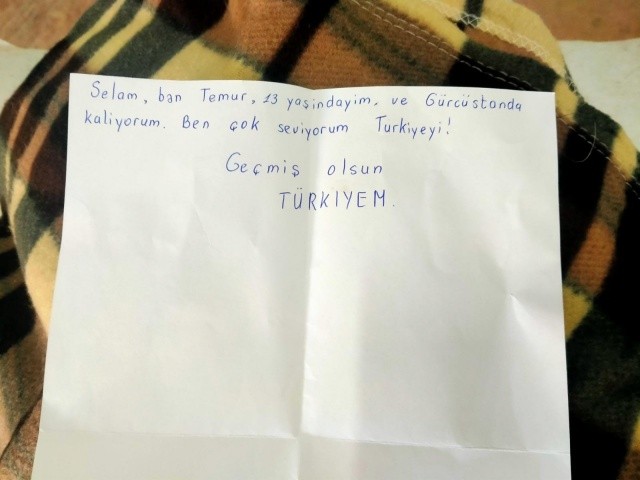 Selam, ban Temur, 13 yaşindayim. ve Gürcüstanda
kaliyorum. Ben çok seviyorum Turkiyeyi!
Geçmiş olsun
TÜRKIYEM.